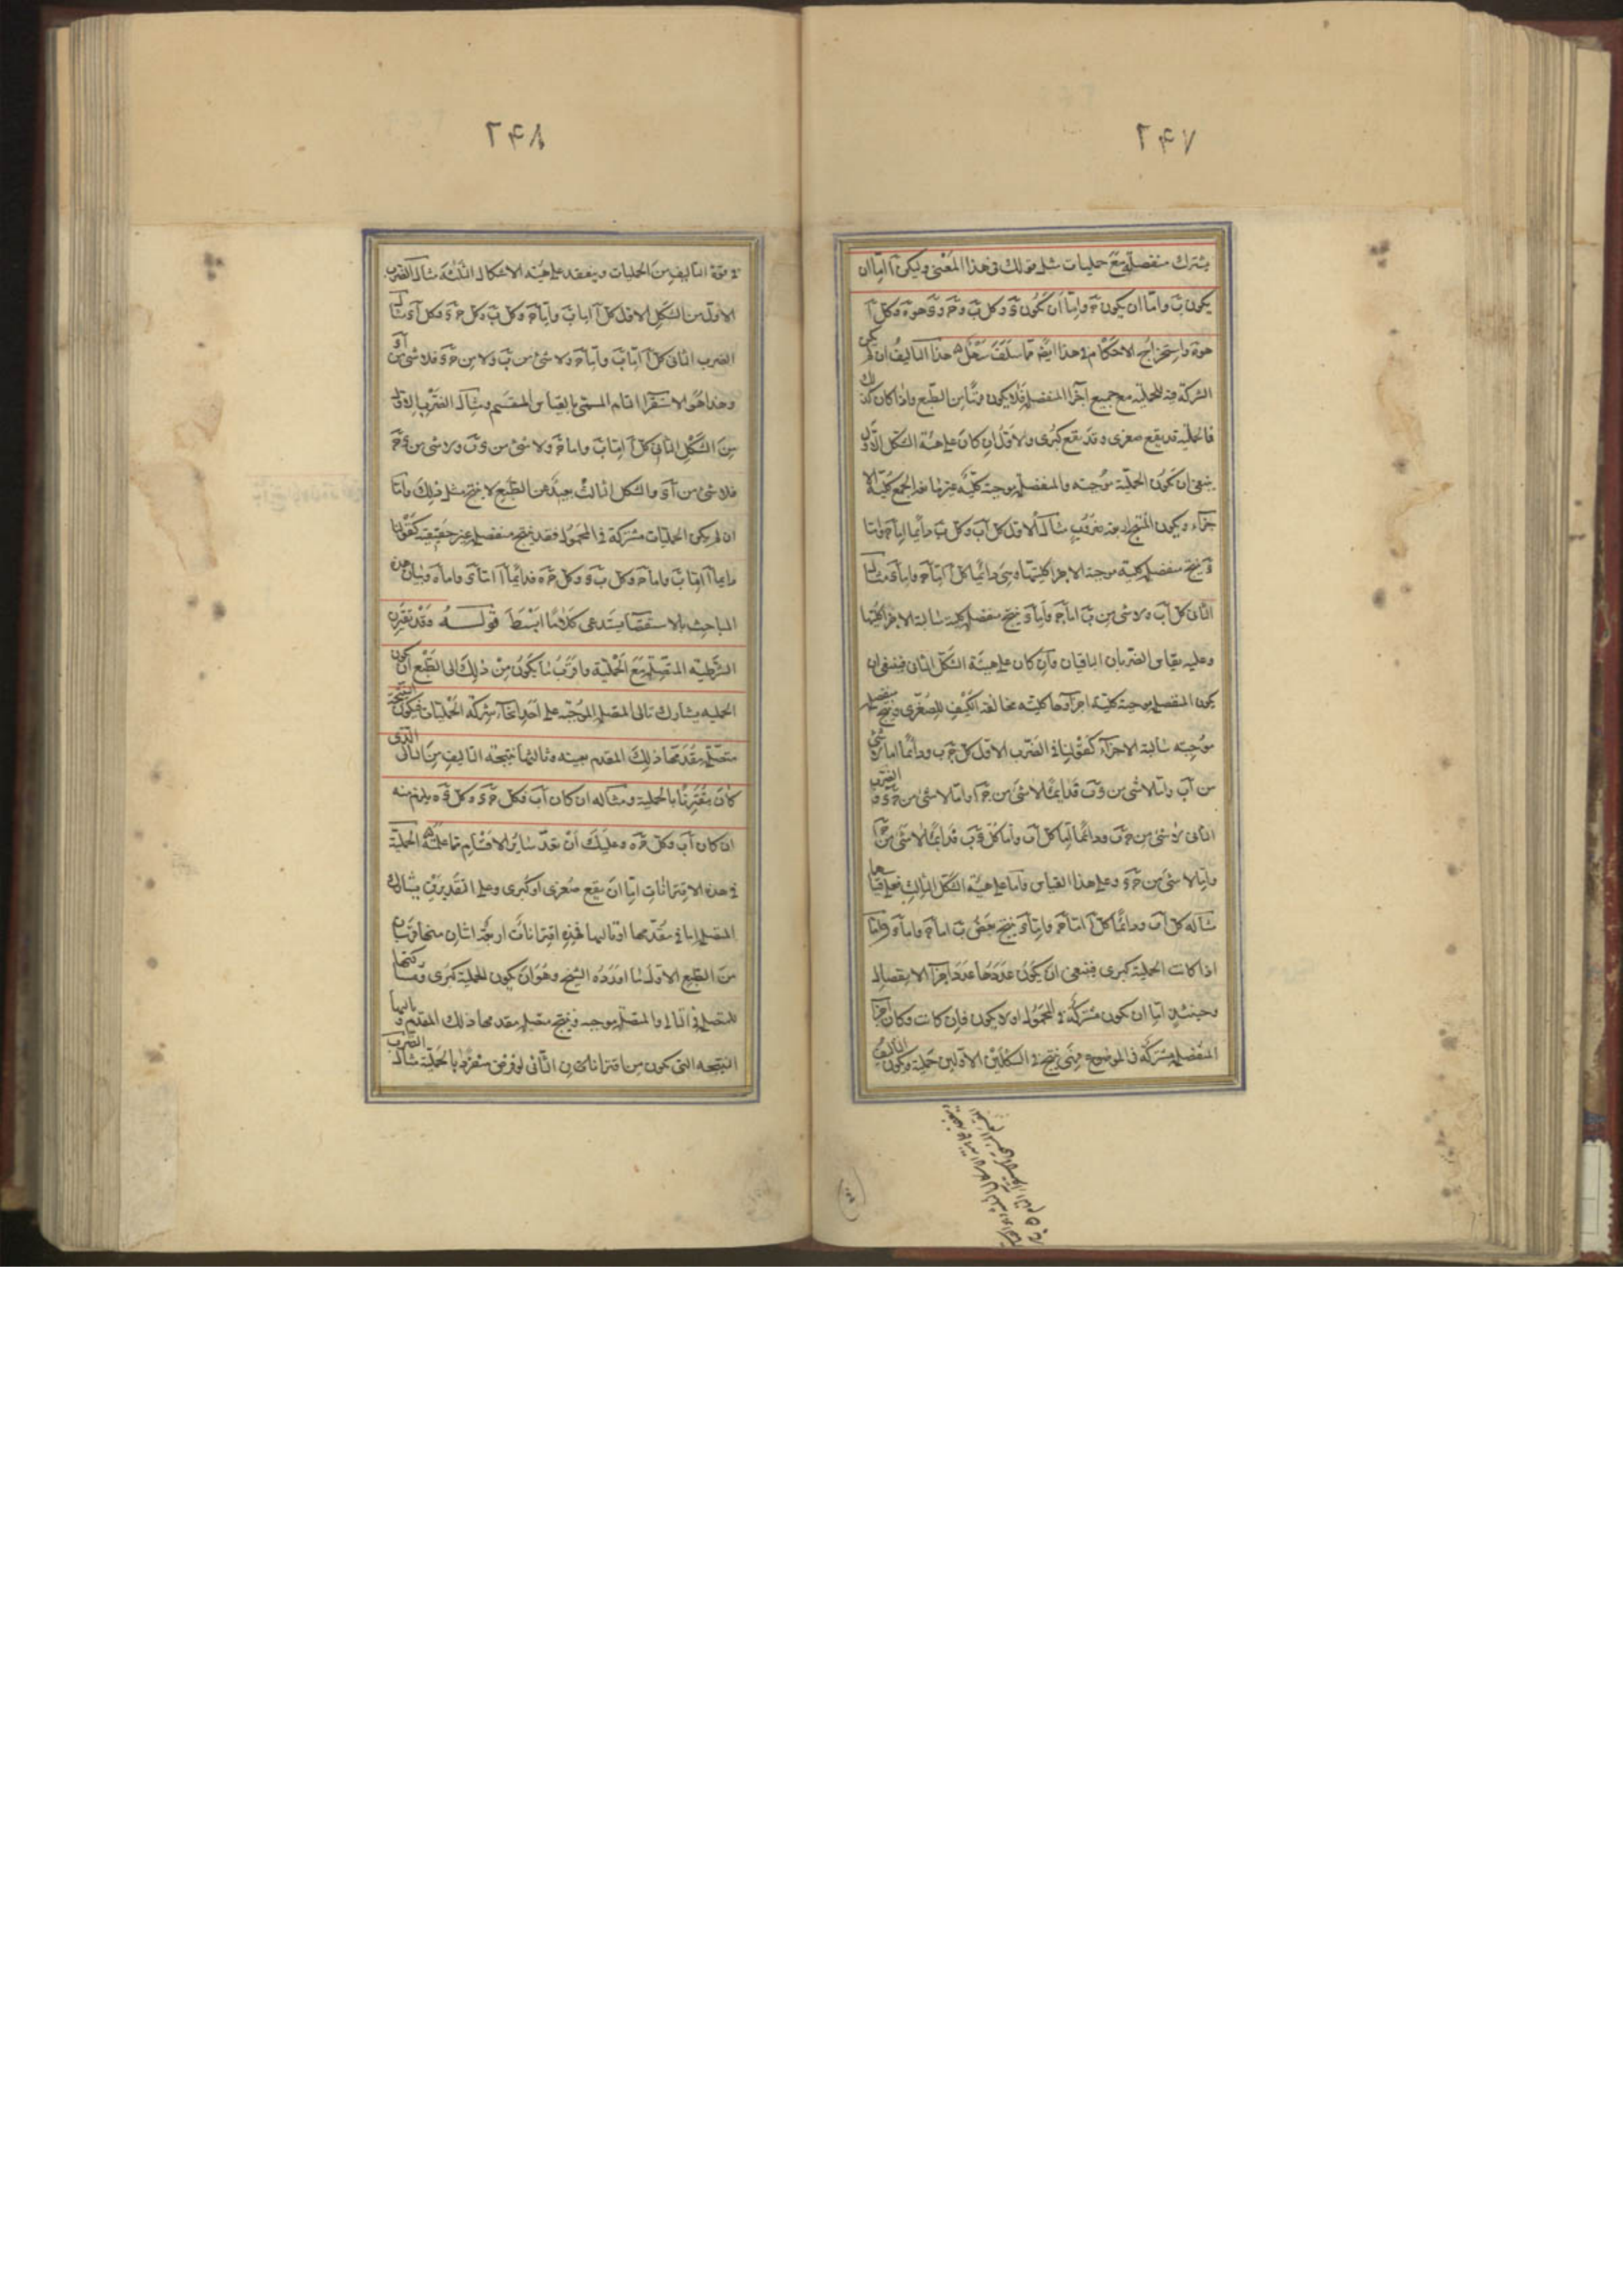 ٢٤٧
يشترك منفصلة مع حمليات مثل قولك في هذا المعنى وليكن آ اما ان
يكون ب واما ان يكون ج واما ان يكون د وكل ب و ج و د هو ه وكل آ
هو ه واستخراج الاحكام في هذا ايضا مما سلف سهل هذا التاليف ان لم يكن
الشركة فيه للحملية مع جميع اجزا المنفصلة فلا يكون قريبا من الطبع واذا كان كذلك
فالحملية قد يقع صغرى وقد يقع كبرى والاول ان كان على هيئة الشكل الاول
ينبغي ان يكون الحملية موجبة والمنفصلة موجبة كلية غير مانعة الجمع كلية الا
جزاء ويكون المنتج اربعة ضروب مثاله الاول كل آ ب وكل ب دايما اما ج واما
د ينتج منفصلة كلية موجبة الاجزا كليتها وهي دائما كل آ اما ج واما د مثال
الثاني كل آ ب ولا شي من ب اما ج واما د ينتج منفصلة كلية سالبة الاجزا كليتها
وعليه يقاس الضربان الباقيان وان كان على هيئة الشكل الثاني فينبغي ان
يكون المنفصلة موجبة كلية اجزاوها كلية مخالفة الكيف للصغرى وينتج منفصلة
موجبة سالبة الاجزاء كقولنا في الضرب الاول كل ج ب ودائما اما لا شي
من آ ب واما لا شي من د ب فدايما لا شي من ج آ واما لا شي من ج د والضرب
الثاني لا شي من ج ب ودائما اما كل آ ب واما كل د ب فدايما لا شي من ج آ
واما لا شي من ج د وعلى هذا القياس واما على هيئة الشكل الثالث فعلى قياسها
مثاله كل آ ب ودائما كل آ اما ج واما د ينتج بعض ب اما ج واما د واما
اذا كانت الحملية كبرى فينبغي ان يكون عددها عدد اجزا الانفصال
وحينئذ اما ان يكون مشتركة في المحمول او لا يكون فان كانت وكان اجزا
المنفصلة مشتركة في الموضوع فهي ينتج في الشكلين الاولين حملية ويكون التاليف
٢٤٨
في قوة التاليف من الحمليات وينعقد على هيئة الاشكال الثلثة مثال الضرب
الاول من الشكل الاول كل آ اما ب واما ج وكل ب د وكل ج د فكل آ د مثال
الضرب الثاني كل آ اما ب واما ج ولا شي من ب د ولا من ج د فلا شي من آ د
وهذا هو الاستقرا التام المسمى بالقياس المقسم ومثال الضرب الاول
من الشكل الثاني كل آ اما ب واما ج ولا شي من د ب ولا شي من د ج
فلا شي من آ د والشكل الثالث بعيد عن الطبع لا ينتج مثل ذلك واما
ان لم يكن الحمليات مشتركة في المحمول فقد ينتج منفصلة غير حقيقية كقولنا
دايما آ اما ب واما ج وكل ب د وكل ج ه فدائما آ اما د واما ه وبيان هذه
المباحث بالاستقصا يستدعي كلاما ابسط قوله وقد تقترن
الشرطية المتصلة مع الحملية واقرب ما يكون من ذلك الى الطبع ان يكون
الحملية يشارك تالي المتصلة الموجبة على احد انحاء شركة الحمليات فيكون النتيجة
متصلة مقدمها ذلك المقدم بعينه وتاليها نتيجة التاليف من التالي الذي
كان مقترنا بالحملية ومثاله ان كان آ ب فكل ج د وكل د ه يلزم منه
ان كان آ ب فكل ج ه وعليك ان تعد ساير الاقسام مما علمته الحملية
في هذه الاقترانات اما ان يقع صغرى او كبرى وعلى التقديرين يشارك
المتصلة اما في مقدمها او تاليها فهذه اقترانات اربعة اثنان منها قريبان
من الطبع الاول ما اورده الشيخ وهو ان يكون الحملية كبرى ومشاركتها
للمتصلة في التالي والمتصلة موجبة وينتج متصلة مقدمها ذلك المقدم وتاليها
النتيجة التي يكون من اقتران التالي لو فرض منفردا بالحملية مثال الضرب